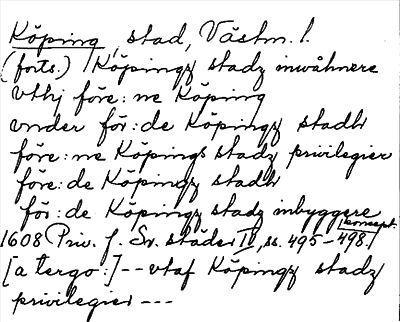 Köping, stad, Västm. l.
(forts.) Köpingz stadz inwåhnere
vthj före:ne Köping
vnder för:de Köpingz stadh
före:ne Köpings stadz privilegier
före:de Köpingz stadh
för:de Köpingz stadz inbyggere
1608 Priv. f. Sv. städer II, ss. 495-498. [koncept.]
[a tergo:] -- vtaf Köpingz stadz
privilegier ---